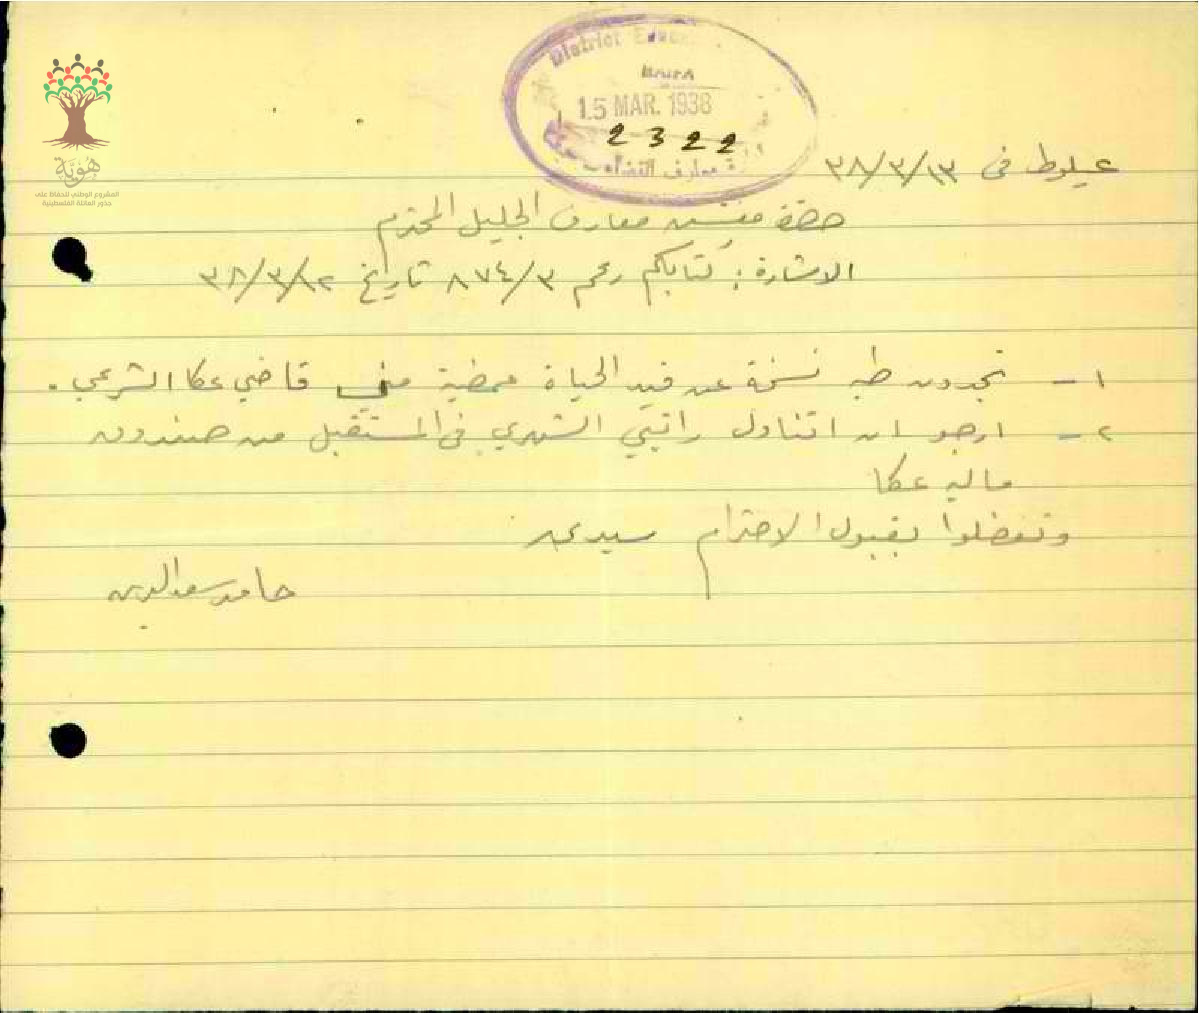 District
HAIFA
15 MAR. 1938
2322
معارف القضاء
هُوِيَّة
المشروع الوطني للحفاظ على
جذور العائلة الفلسطينية
عيلوط في ١٣/٣/٣٨
حضرة مفتش معارف الجليل المحترم
الاشارة: كتابكم رقم ٨٧٤/٣ تاريخ ١٢/٣/٣٨
١ - تجدون طيه نسخة عن قيد الحياة ممضية من قاضي عكا الشرعي.
٢ - ارجو ان اتناول راتبي الشهري في المستقبل من صندوق
مالية عكا
وتفضلوا بقبول الاحترام سيدي
حامد سعد الدين